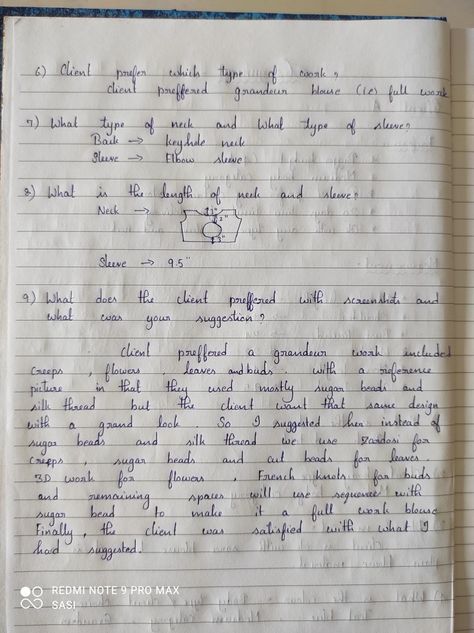 6) Client prefer which type of work?
Client preffered grandeur blouse (i.e) full work
7) What type of neck and what type of sleeve?
Back → Keyhole neck
Sleeve → Elbow sleeve
8) What is the length of neck and sleeve?
Neck →
2"
Sleeve → 9.5"
9) What does the client preffered with screenshots and
what was your suggestion?
Client preffered a grandeur work included
creeps, flowers, leaves and buds. with a reference
picture in that they used mostly sugar beads and
silk thread but the client want that same design
with a grand look. So I suggested her instead of
sugar beads and silk thread we use Zardosi for
creeps, sugar beads and cut beads for leaves.
3D work for flowers, French knots for buds
and remaining spaces will use sequence with
sugar bead to make it a full work blouse
Finally, the client was satisfied with what I
had suggested.
REDMI NOTE 9 PRO MAX
SASI